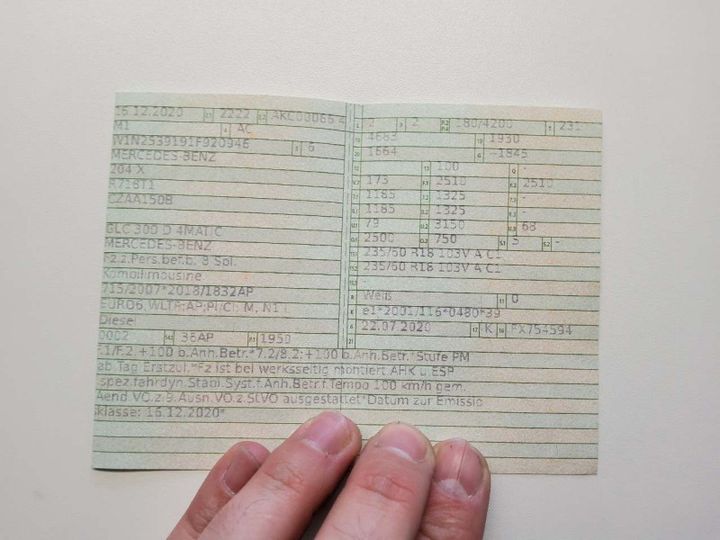 16.12.2020 2222 AKC00066 4
M1 AC
W1N2539191F920946 6
MERCEDES-BENZ
204 X
R71BT1
CZAA150B
GLC 300 D 4MATIC
MERCEDES-BENZ
Fz.z.Pers.bef.b. 8 Spl.
Kombilimousine
715/2007*2018/1832AP
EURO6;WLTP;AP;PI/CI; M, N1 I
Diesel
0002 36AP 1950
2 2 180/4200 231
4683 1930
1664 -1845
100 -
173 2510 2510
1185 1325 -
1185 1325 -
79 3150 68
2500 750 5 -
235/60 R18 103V A C1
235/60 R18 103V A C1
-
Weiß 0
e1*2001/116*0480*39
22.07.2020 K PX754594
7.1/F.2.:+100 b.Anh.Betr.*7.2/8.2:+100 b.Anh.Betr.*Stufe PM
ab Tag Erstzul.*Fz ist bei werksseitig montiert AHK u.ESP
spez.fahrdyn.Stabi.Syst.f.Anh.Betr.f.Tempo 100 km/h gem.
Aend.VO.z.9.Ausn.VO.z.StVO ausgestattet*Datum zur Emissio
klasse: 16.12.2020*